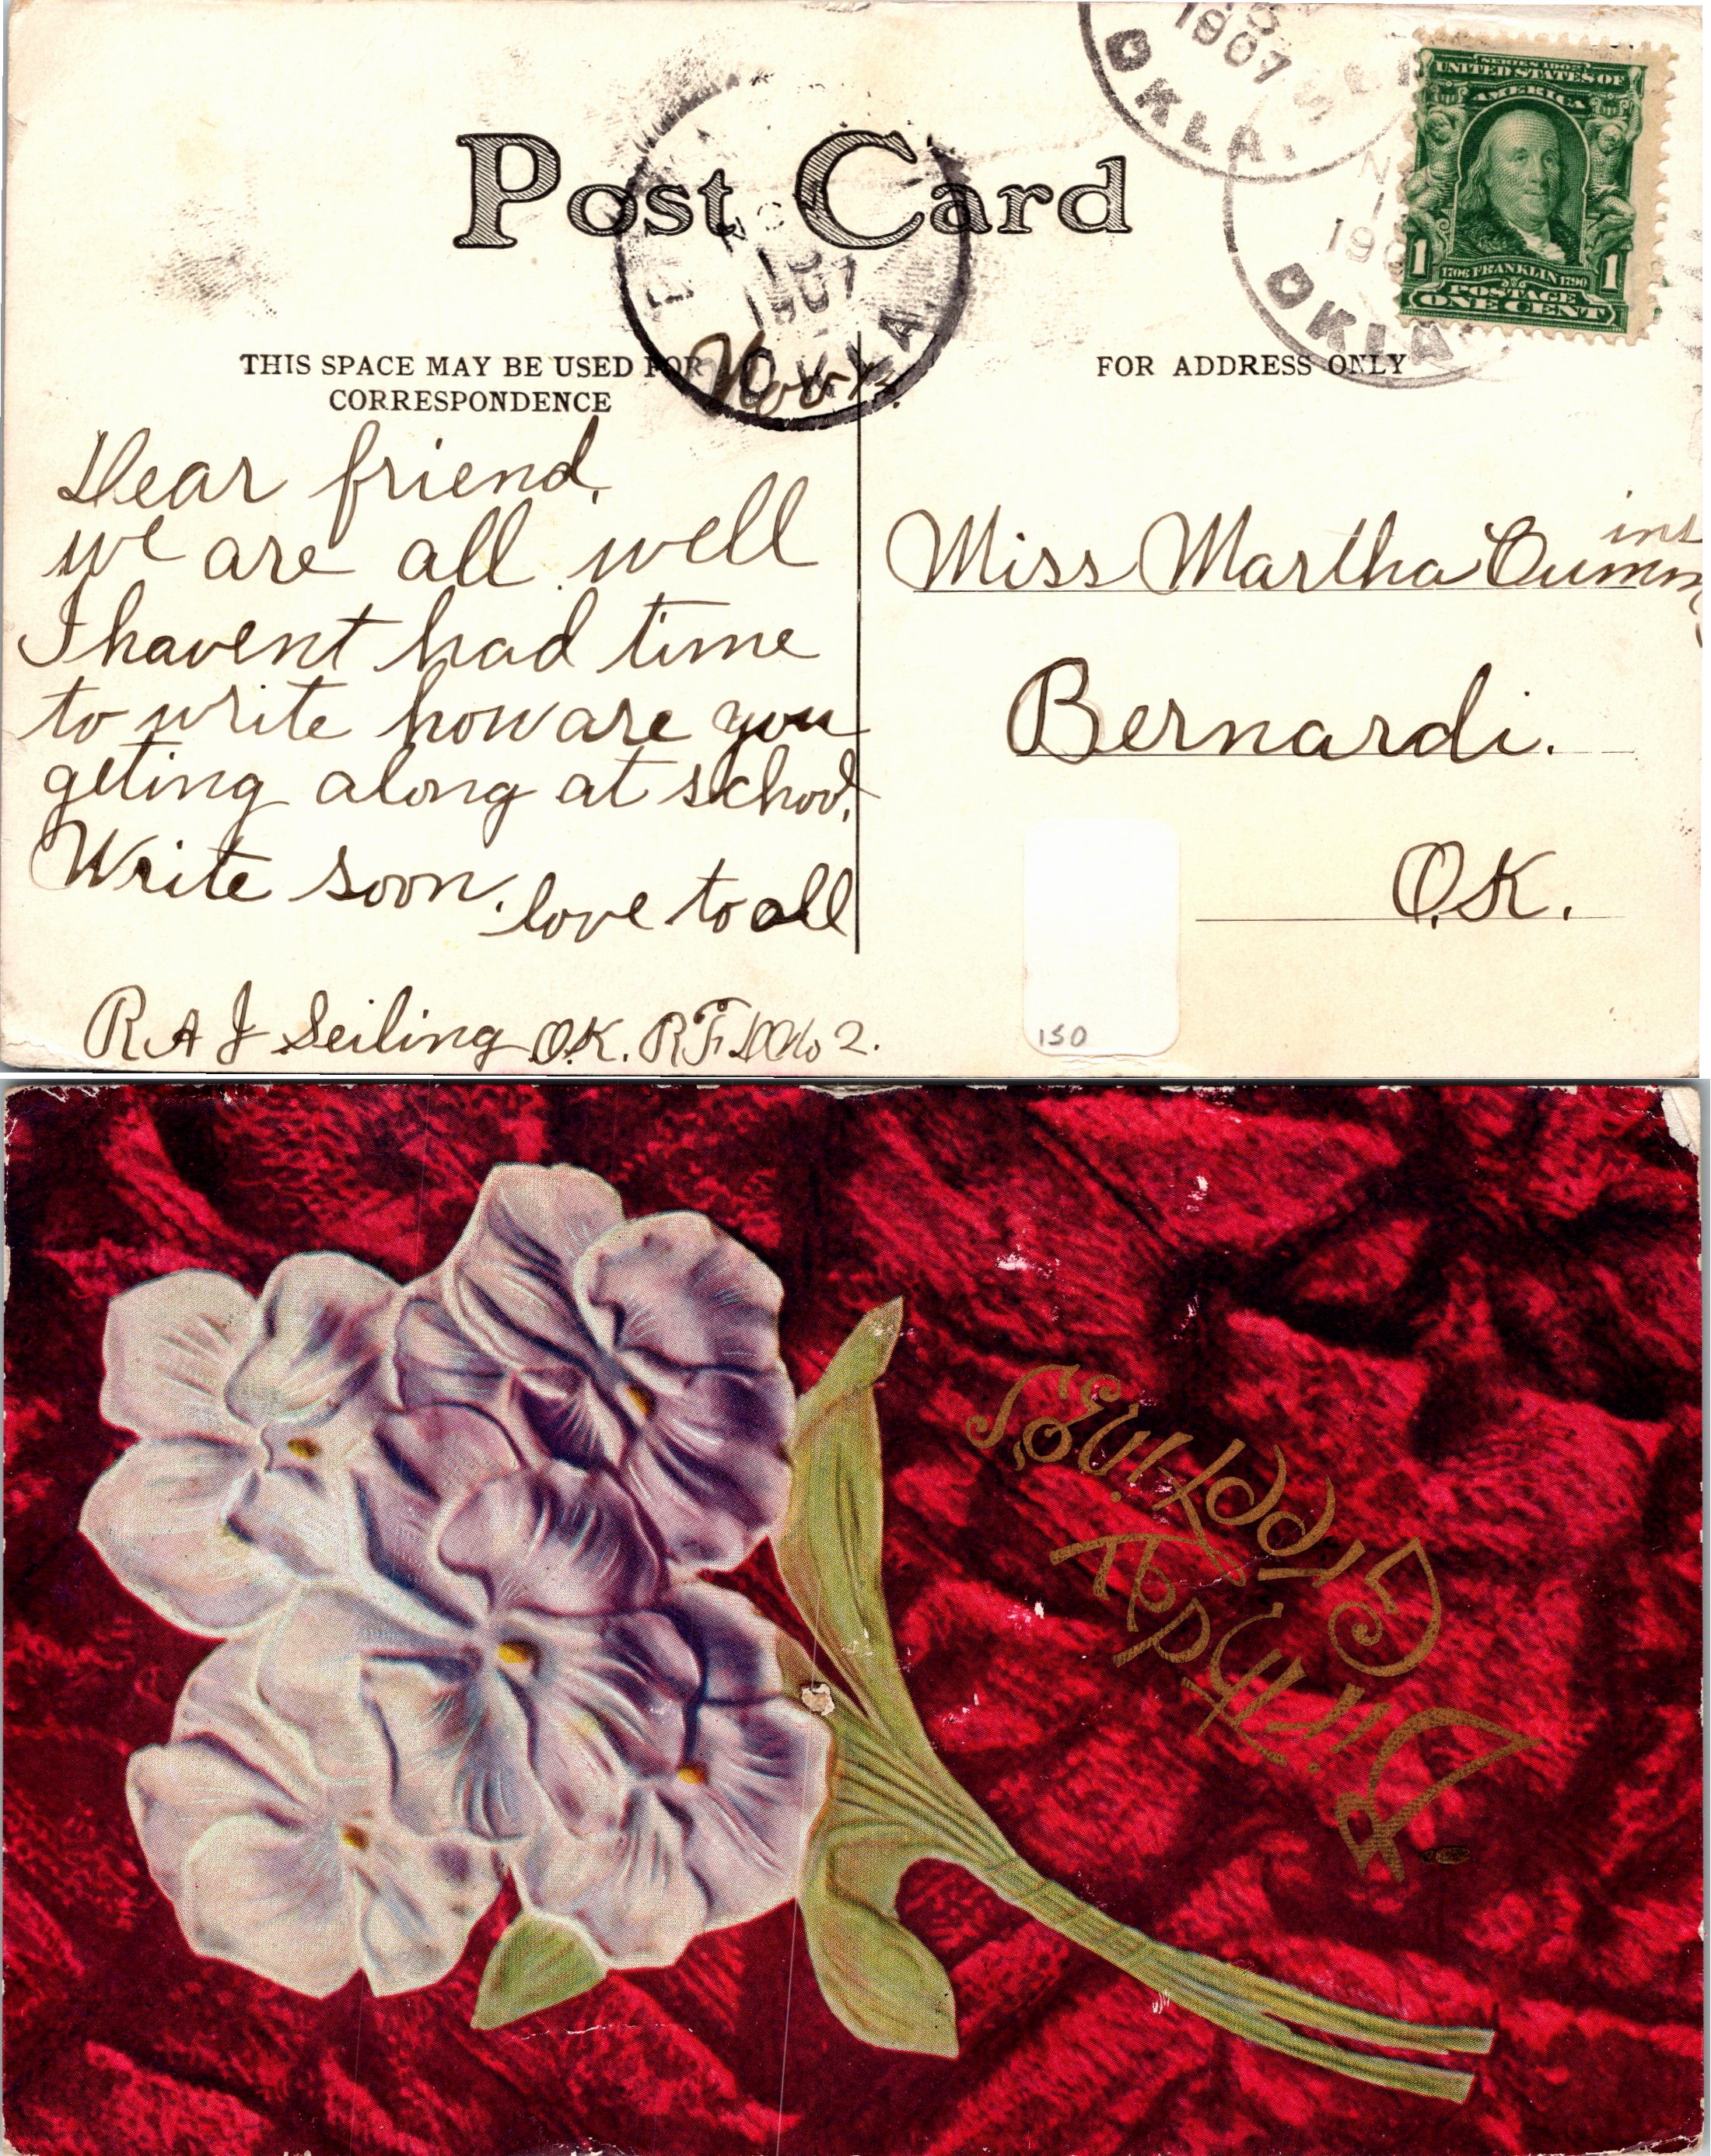 Post Card
1907
OKLA.
SERIES 1902
UNITED STATES OF
AMERICA
1 1
1706 FRANKLIN 1790
POSTAGE
ONE CENT
OKLA
1907
OKLA.
THIS SPACE MAY BE USED FOR
CORRESPONDENCE
FOR ADDRESS ONLY
Dear friend,
we are all well
I havent had time
to write how are you
geting along at school,
Write soon. love to all
R A J Seiling O.K. R F D No 2.
Miss Martha Cummins
Bernardi.
O.K.
150
Birthday
Greetings